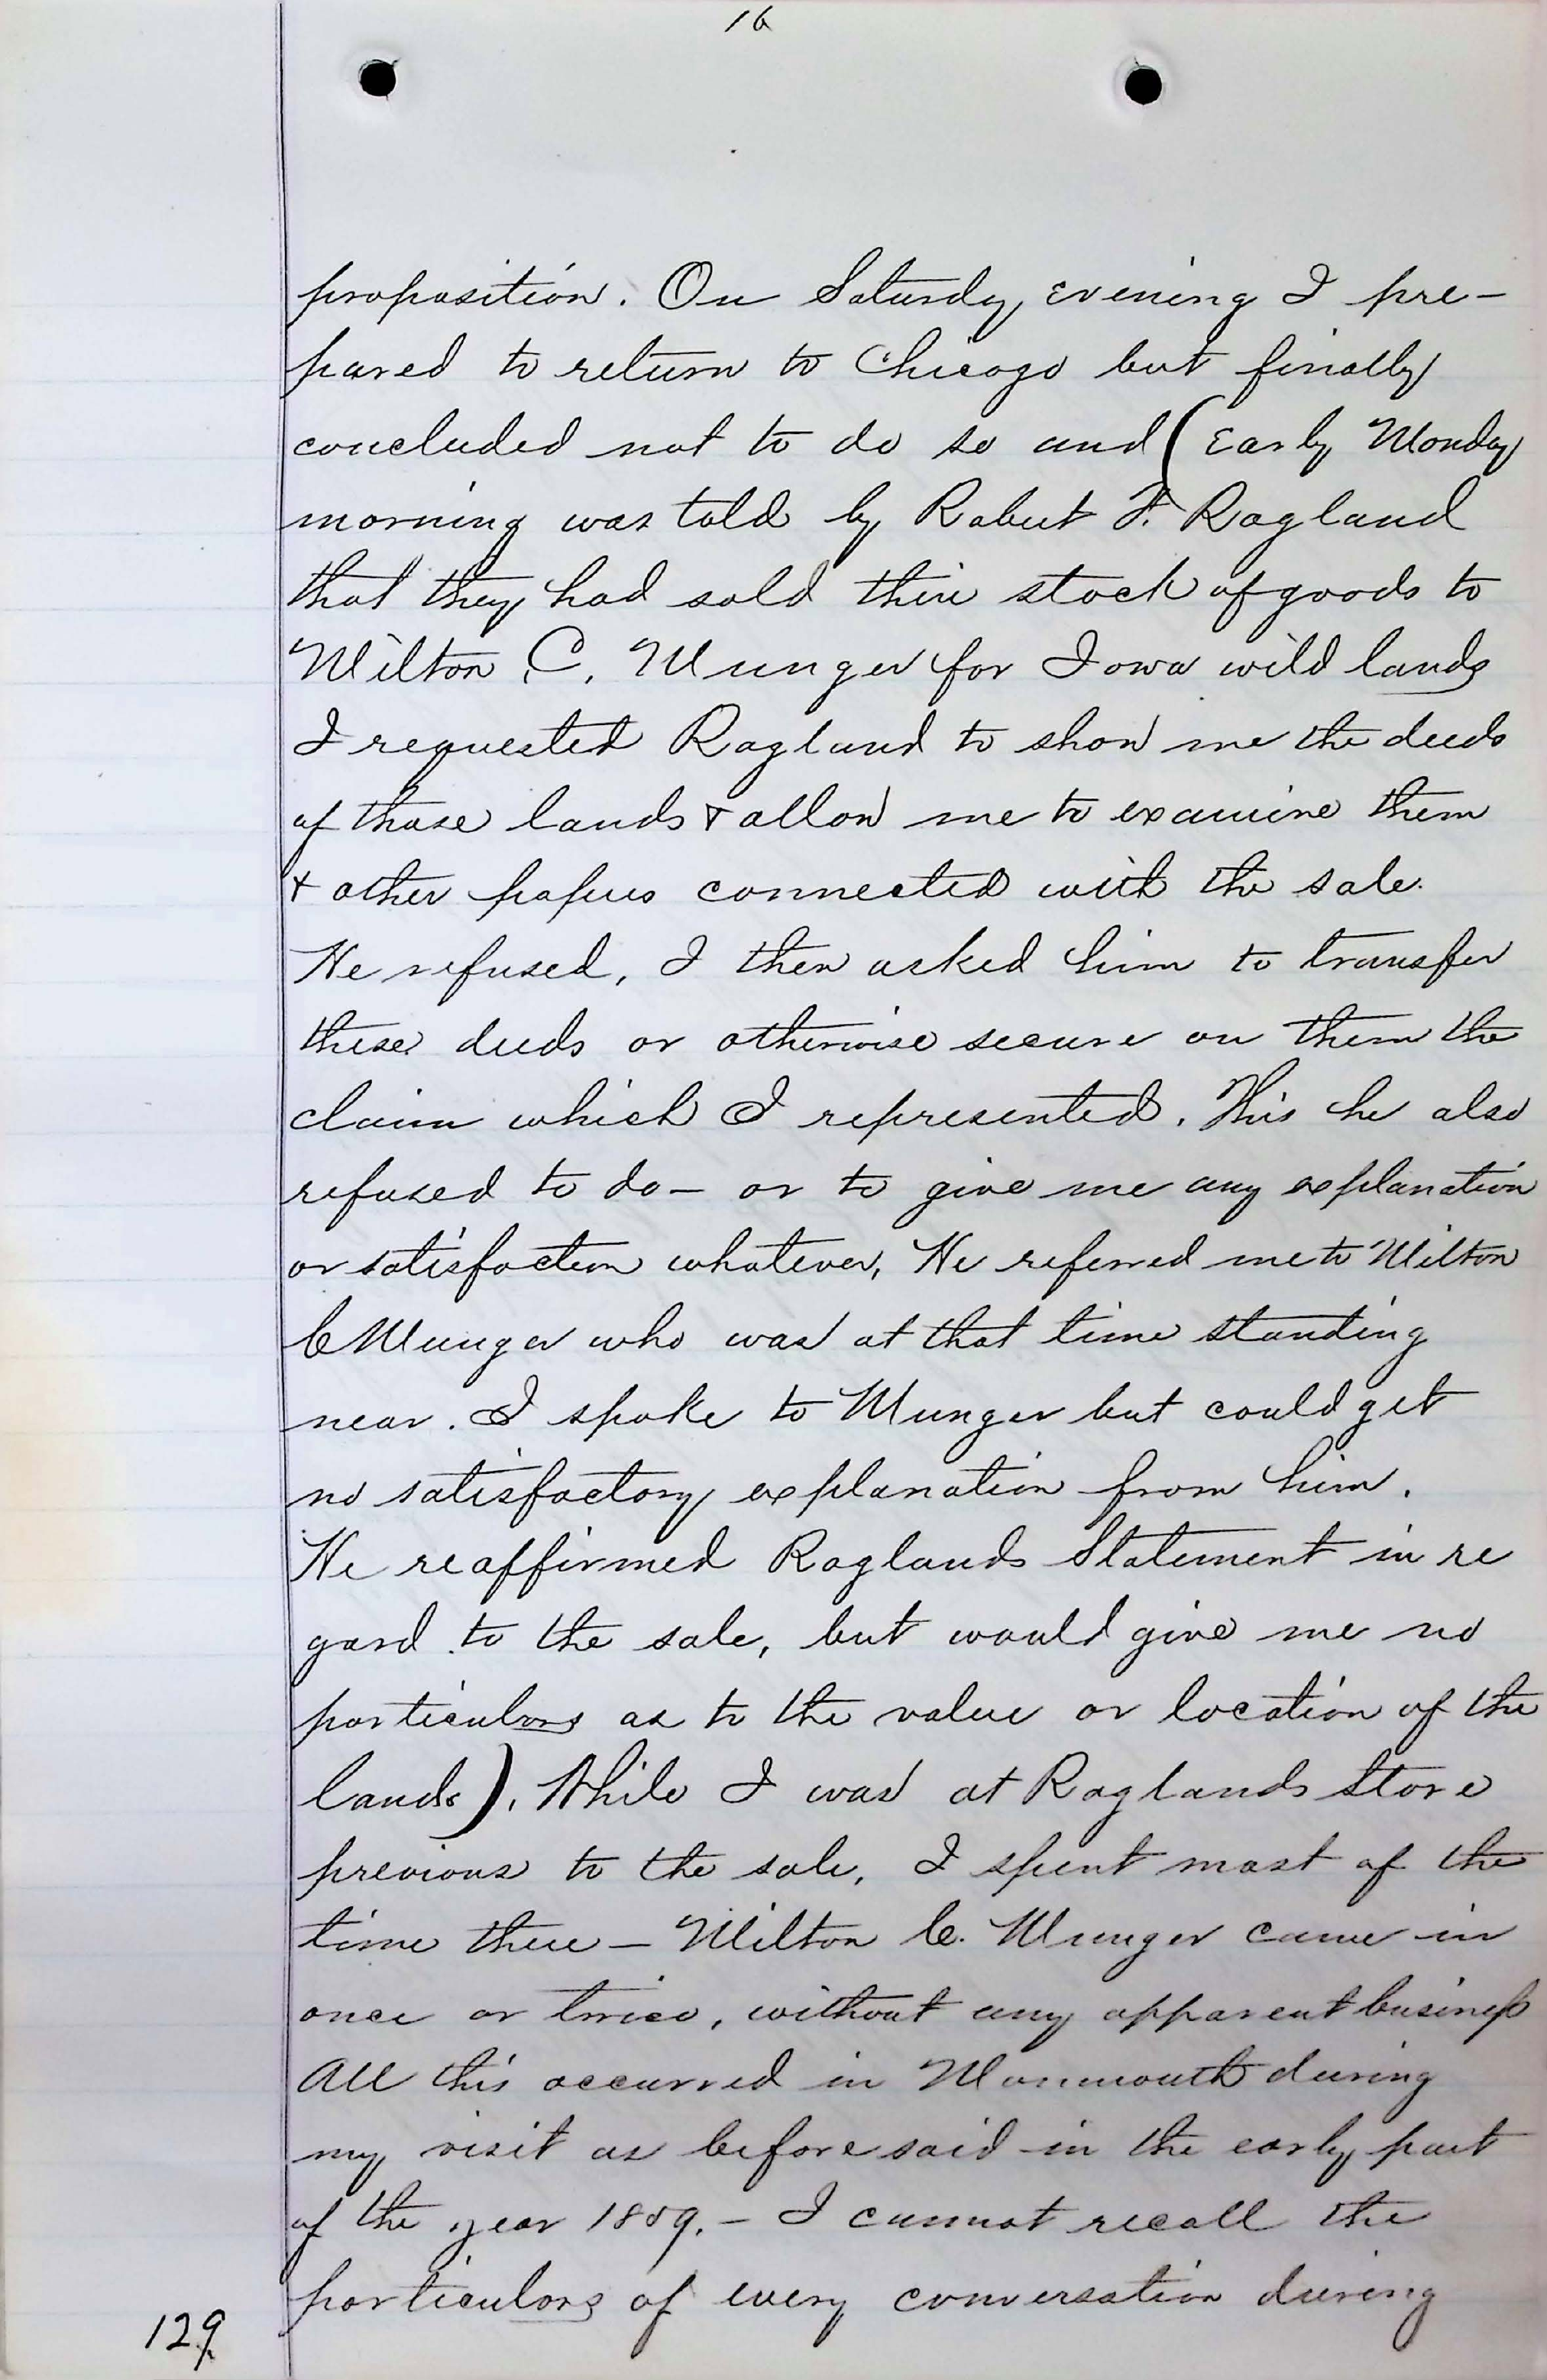 16
proposition. On Saturdy evening I pre-
pared to return to Chicago but finally
concluded not to do so and (Early Monday
morning was told by Robert F. Ragland
that they had sold their stock of goods to
Milton C. Munger for Iowa wild lands
I requested Ragland to show me the deeds
of those lands & allow me to examine them
& other papers connected with the sale.
He refused, I then asked him to transfer
these deeds or otherwise secure on them the
claim which I represented. This he also
refused to do - or to give me any explanation
or satisfaction whatever, He referred me to Milton
C Munger who was at that time standing
near. I spoke to Munger but could get
no satisfactory explanation from him.
He reaffirmed Raglands Statement in re
gard to the sale, but would give me no
particulars as to the value or location of the
lands). While I was at Raglands store
previous to the sale, I spent most of the
time there - Milton C. Munger came in
once or twice, without any apparent business
All this occurred in Monmouth during
my visit as before said in the early part
of the year 1859. - I cannot recall the
particulars of every conversation during
129.